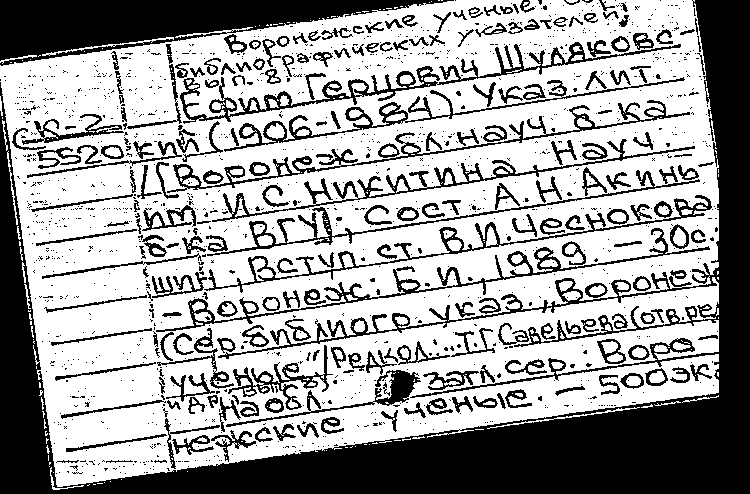 Воронежские ученые: Сер.
библиографических указателей;
вып. 8!
Ефим Герцович Шуляковс-
СК-2
5520
кий (1906-1984): Указ. лит.
/[Воронеж. обл. науч. б-ка
им. И.С. Никитина, Науч.
б-ка ВГУ]; Сост. А.Н. Акинь-
шин; Вступ. ст. В.И. Чеснокова.
- Воронеж: Б.и., 1989. - 30с.;
(Сер. библиогр. указ. „Воронеж.
ученые"/Редкол.:..Т.Г. Савельева (отв.ред.
и др.; вып. 8).
На обл. загл. сер.: Воро-
нежские ученые. - 500экз